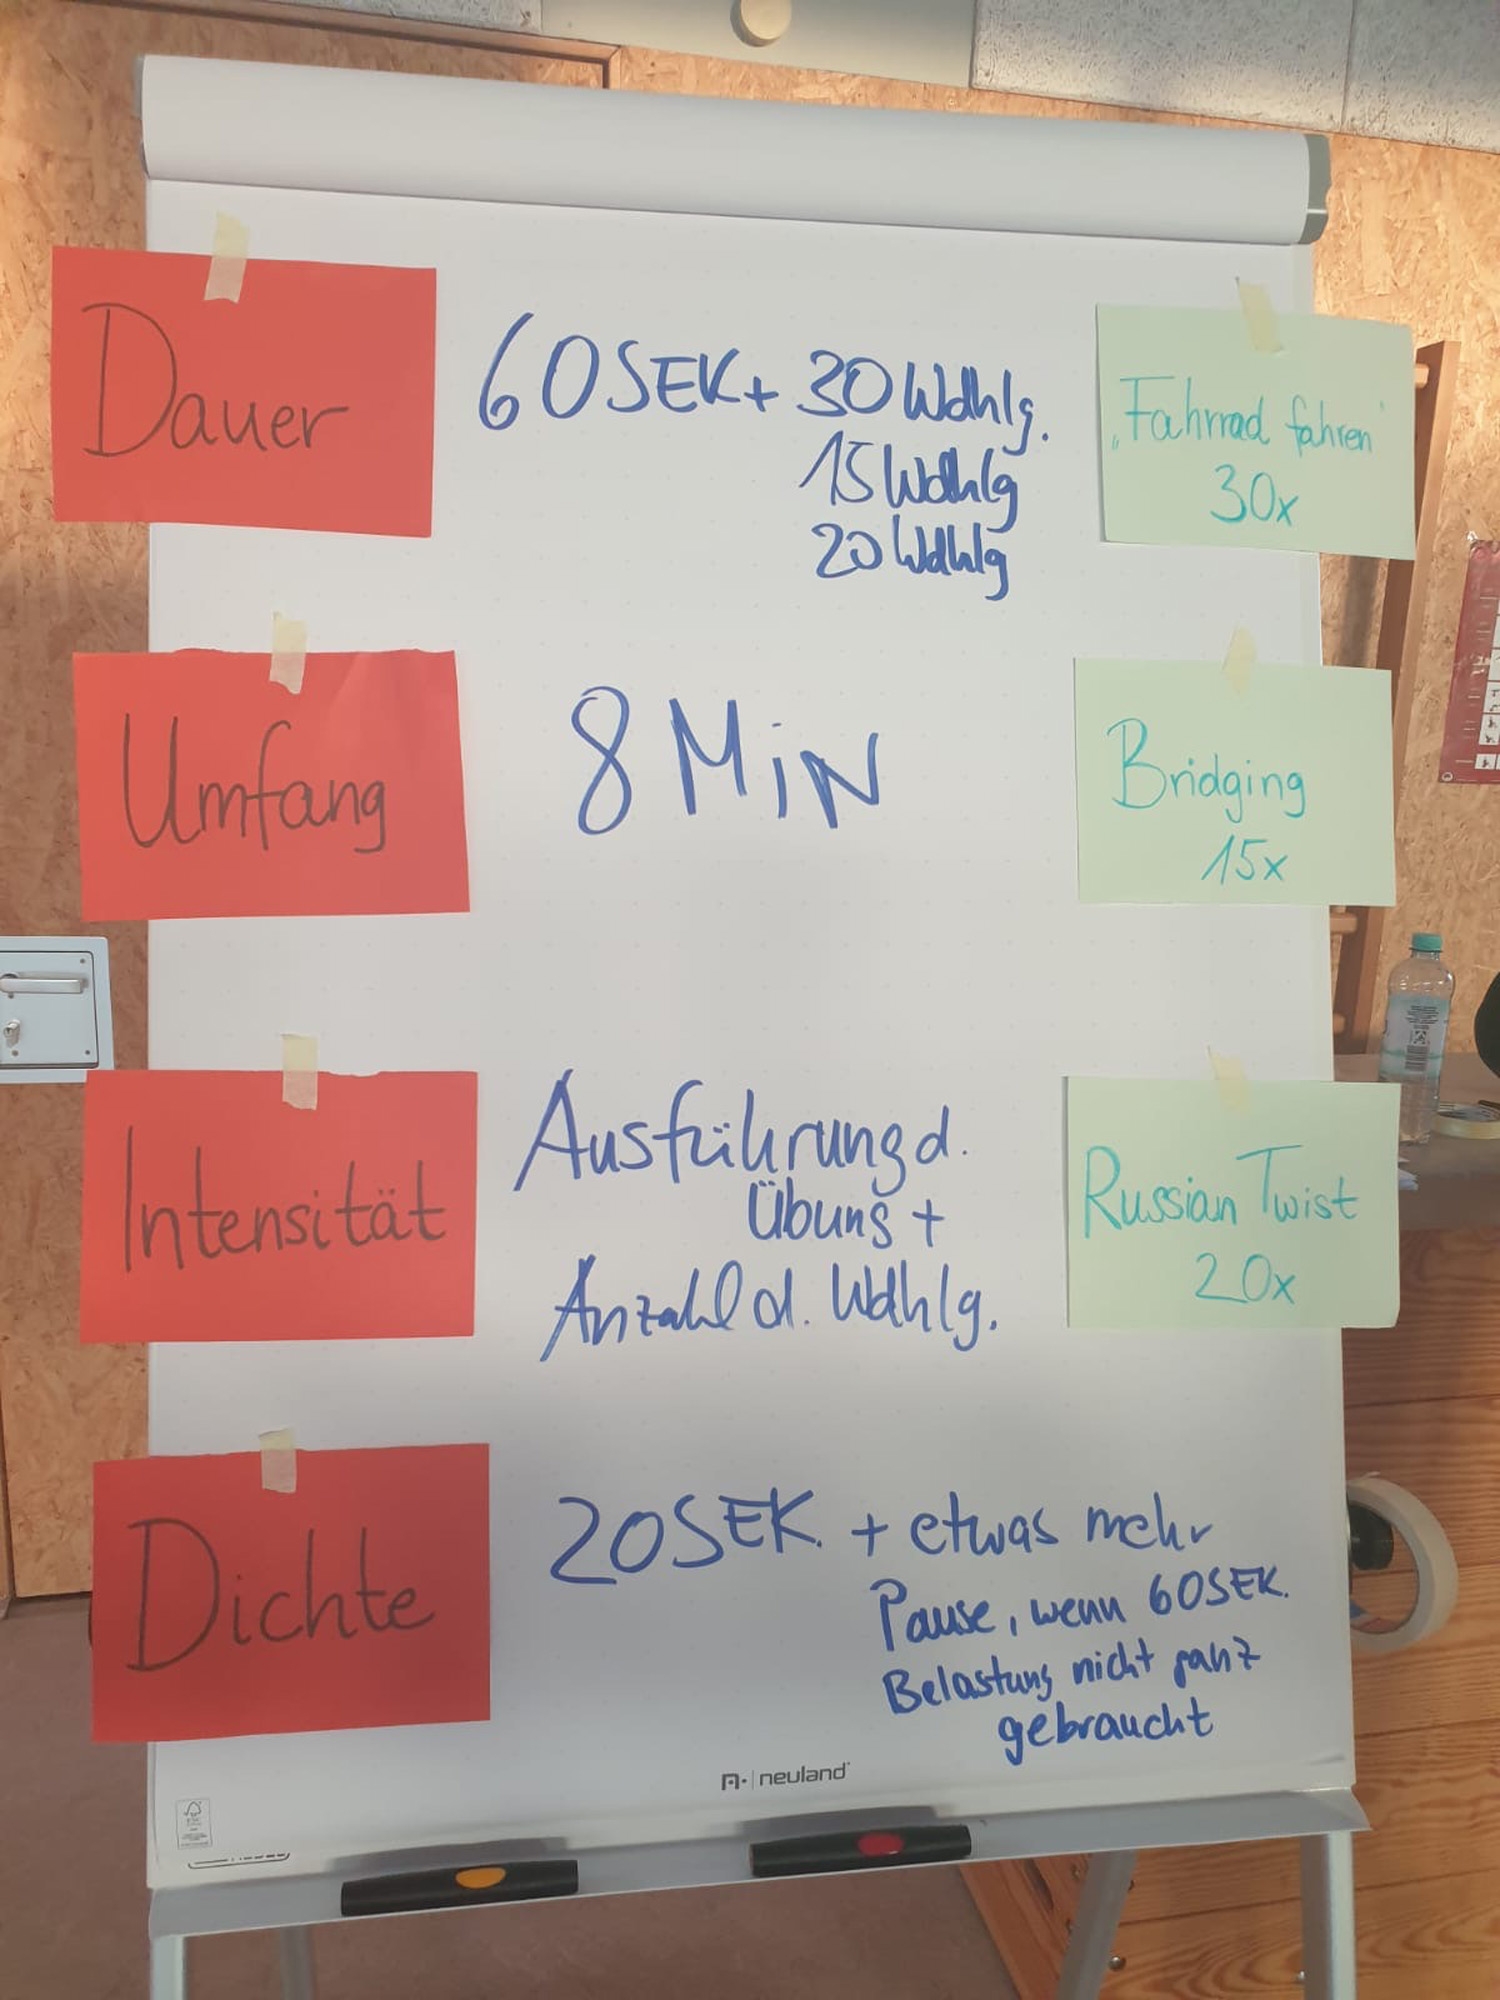 Dauer
60 SEK + 30 Wdhlg.
15 Wdhlg
20 Wdhlg
„Fahrrad fahren"
30x
Umfang
8 MiN
Bridging
15x
Intensität
Ausführung d.
Übung +
Anzahl d. Wdhlg.
Russian Twist
20x
Dichte
20 SEK. + etwas mehr
Pause, wenn 60 SEK.
Belastung nicht ganz
gebraucht
neuland